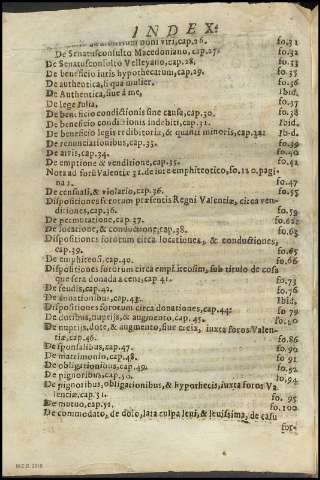 INDEX.
boni viri, cap.26. fo.31
De Senatusconsulto Macedoniano, cap.27. fo.32
De Senatusconsolto Velleyano, cap.28. fo.33
De beneficio iuris hypothecarum, cap.29. fo.35
De authentica, si qua mulier. fo.36
De Authentica, siue á me, Ibid.
De lege Iulia, fo.37
De beneficio condictionis sine causa, cap.30. fo.38
De beneficio condictionis indebiti, cap.31. Ibid.
De beneficio legis redibitoriæ, & quanti minoris, cap.32. Ibid.
De renunciationibus, cap.33. fo.39
De arris, cap.34. fo.40
De emptione & venditione, cap.35. fo.42
Nota ad forũ Valentiæ 31. de iure emphiteotico, fo.120. pagi-
na 1. fo.47
De censuali, & violario, cap.36. fo.55
Dispositiones fororum præsentis Regni Valentiæ, circa ven-
ditiones, cap.36. fo.59
De permutatione, cap.37. fo.62.
De locatione, & conductione, cap.38. fo.63
Dispositiones fororum circa locationes, & conductiones,
cap.39. fo.65
De emphiteosi, cap.40. fo.66
Dispositiones fororum circa emphiteosim, sub titulo de cosa
que sera donada a cens, cap.41. fo.73
De feudis, cap.42. fo.76
De donationibus, cap.43. Ibid.
Dispositiones fororum circa donationes, cap.44. fo 79
De dotibus, nuptijs, & augmento, cap.45. fo.80
De nuptijs, dote, & augmento, siue creix, iuxta foros Valen-
tiæ, cap.46. fo.86
De sponsalibus, cap.47. fo.90
De matrimonio, cap.48. fo 91
De obligationibus, cap.49. fo.92.
De pignoribus, cap.50. fo.94
De pignoribus, obligationibus, & hypothecis, iuxta foros Va-
lenciæ, cap.51. fo. 95
De mutuo, cap.52. fo.100
De commodato, de dolo, lata culpa leui, & leuissima, de casu
for-